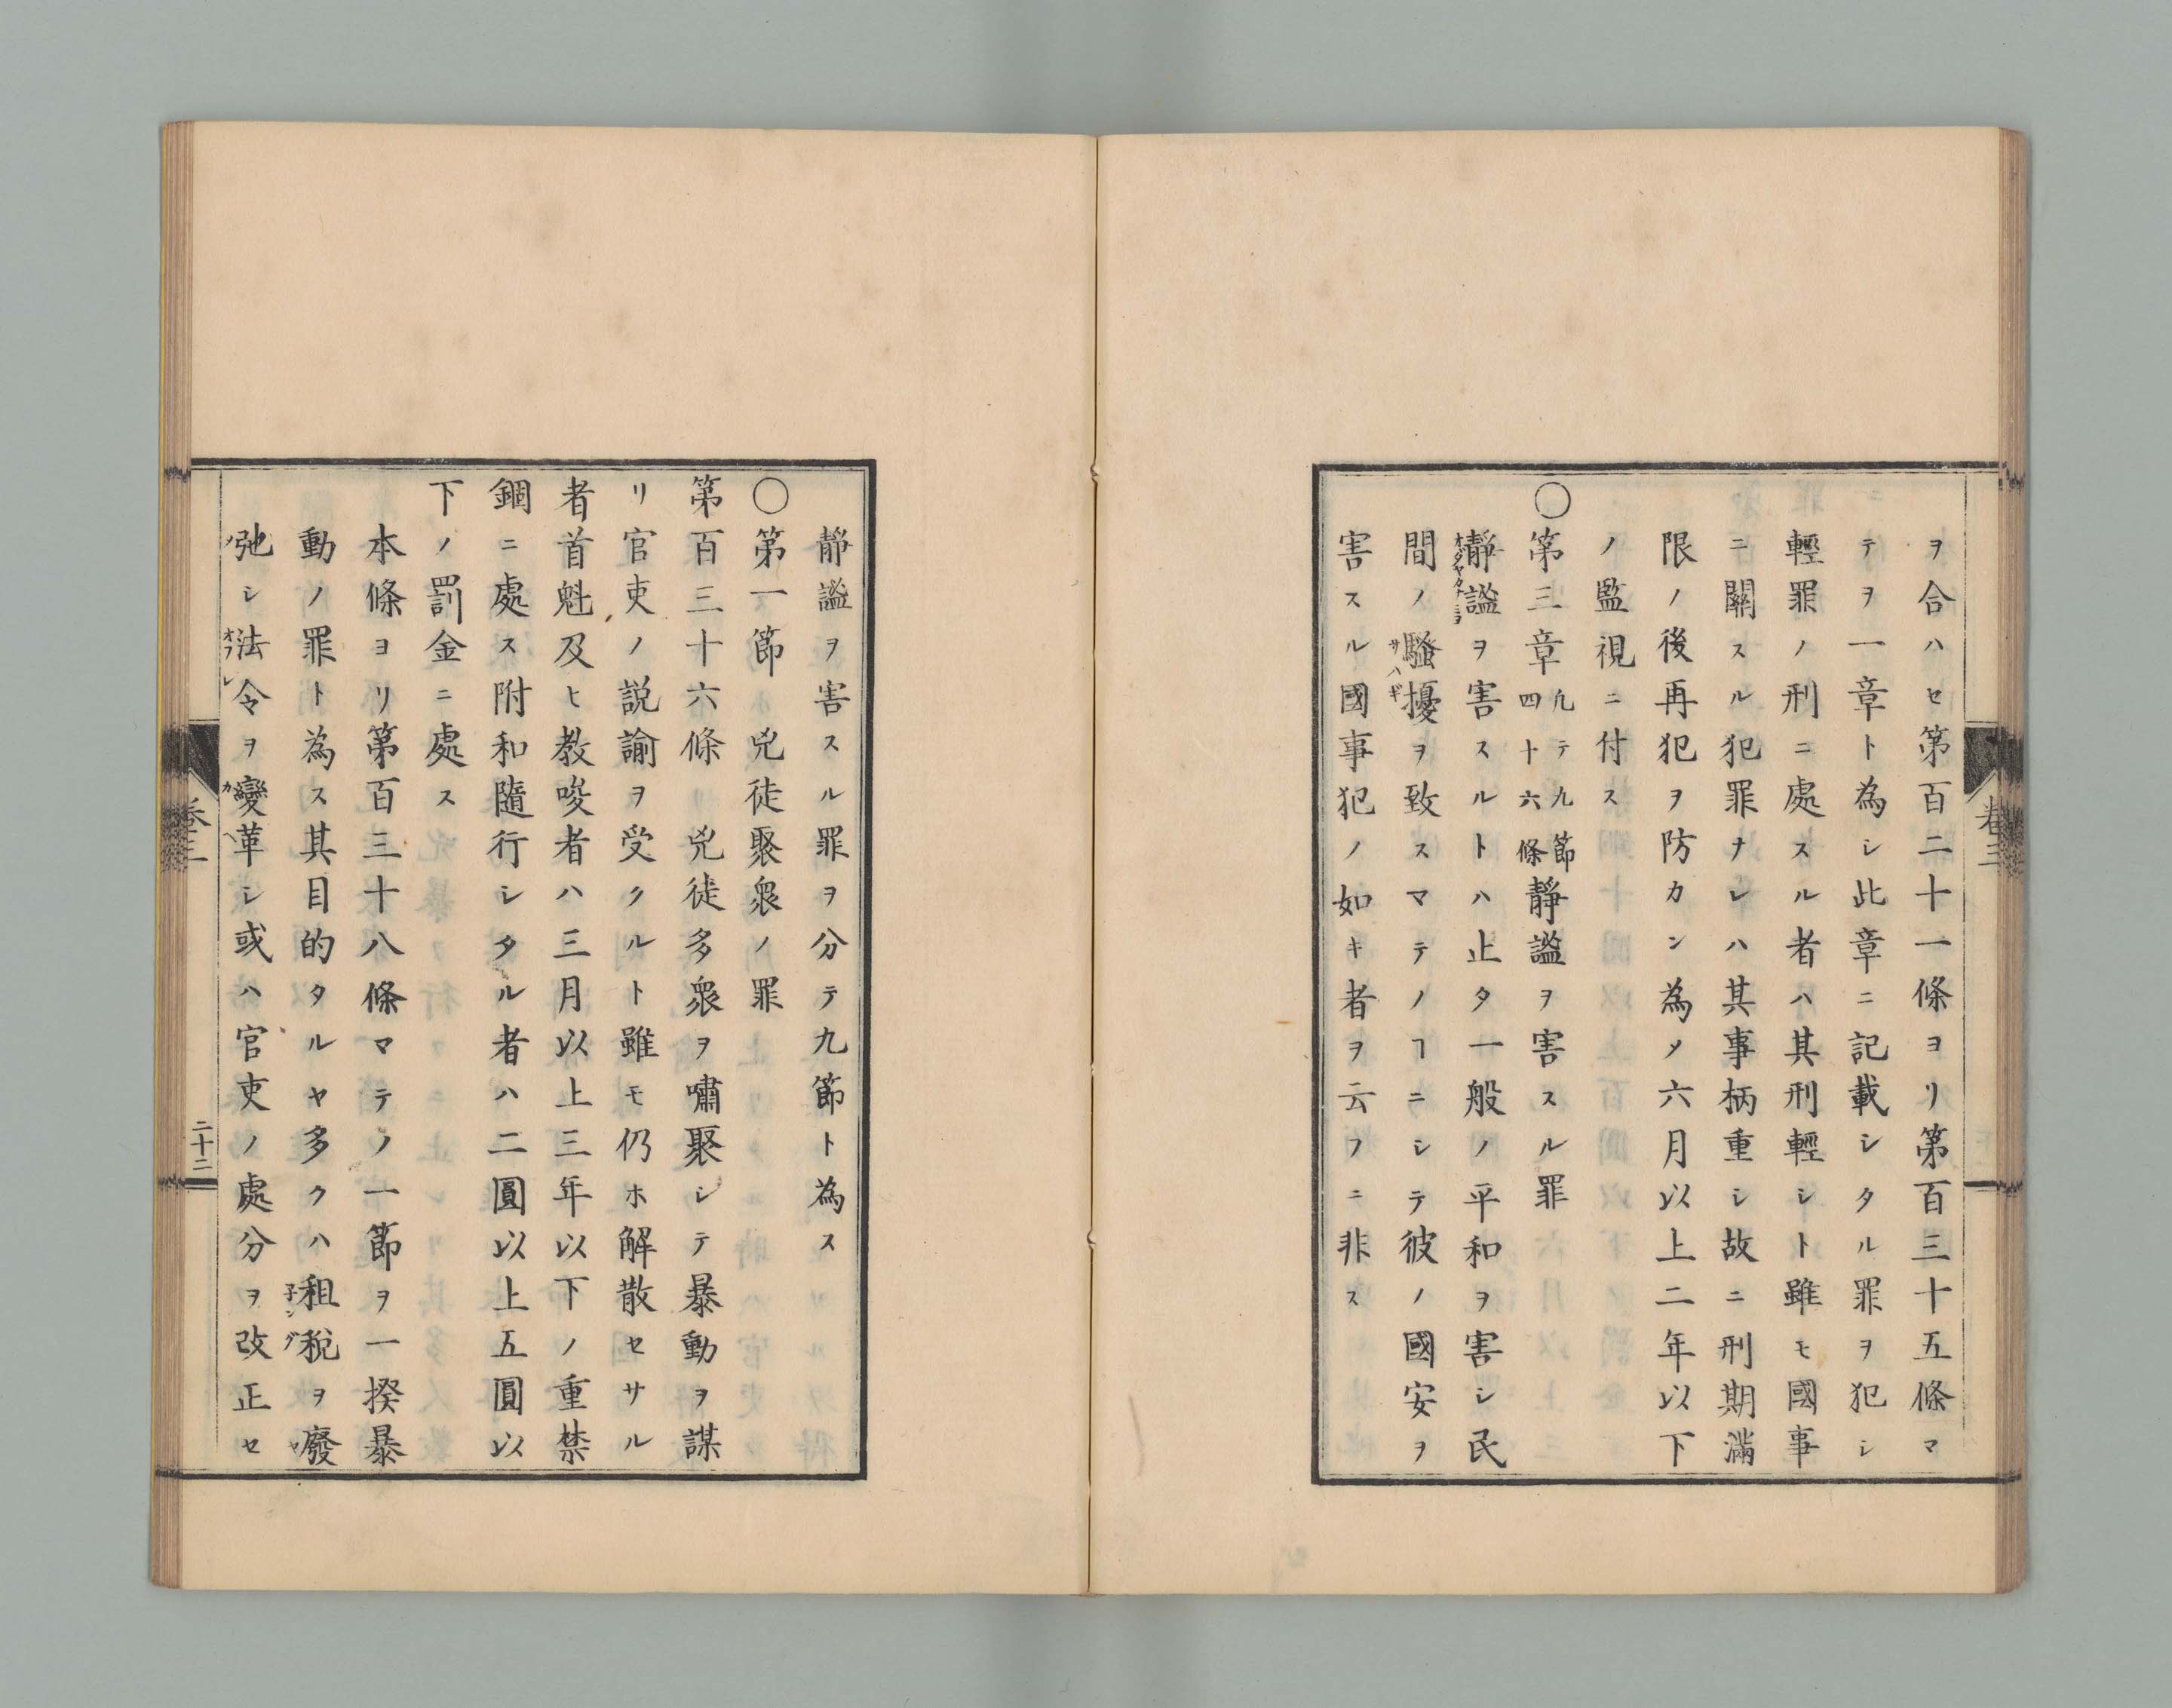 ヲ合ハセ第百二十一條ヨリ第百三十五條マ
テヲ一章ト為シ此章ニ記載シタル罪ヲ犯シ
輕罪ノ刑ニ處スル者ハ其刑輕シト雖モ國事
ニ關スル犯罪ナレハ其事柄重シ故ニ刑期滿
限ノ後再犯ヲ防カン為メ六月以上二年以下
ノ監視ニ付ス
〇第三章凢テ九節四十六條靜謐ヲ害スル罪
靜謐ヲ害スルトハ止タ一般ノ平和ヲ害シ民
間ノ騷擾ヲ致スマテノヿニシテ彼ノ國安ヲ
サハギ
害スル國事犯ノ如キ者ヲ云フニ非ス
卷三
靜謐ヲ害スル罪ヲ分テ九節ト為ス
〇第一節兇徒聚衆ノ罪
第百三十六條 兇徒多衆ヲ嘯聚シテ暴動ヲ謀
リ官吏ノ説諭ヲ受クルト雖モ仍ホ解散セサル
者首魁及ヒ教唆者ハ三月以上三年以下ノ重禁
錮ニ處ス附和隨行シタル者ハ二圓以上五圓以
下ノ罰金ニ處ス
本條ヨリ第百三十八條マテノ一節ヲ一揆暴
動ノ罪ト為ス其目的タルヤ多クハ租税ヲ廢
子ングヤ
弛シ法令ヲ變革シ或ハ官吏ノ處分ヲ改正セ
オフレ
カヘ
卷三
二十二